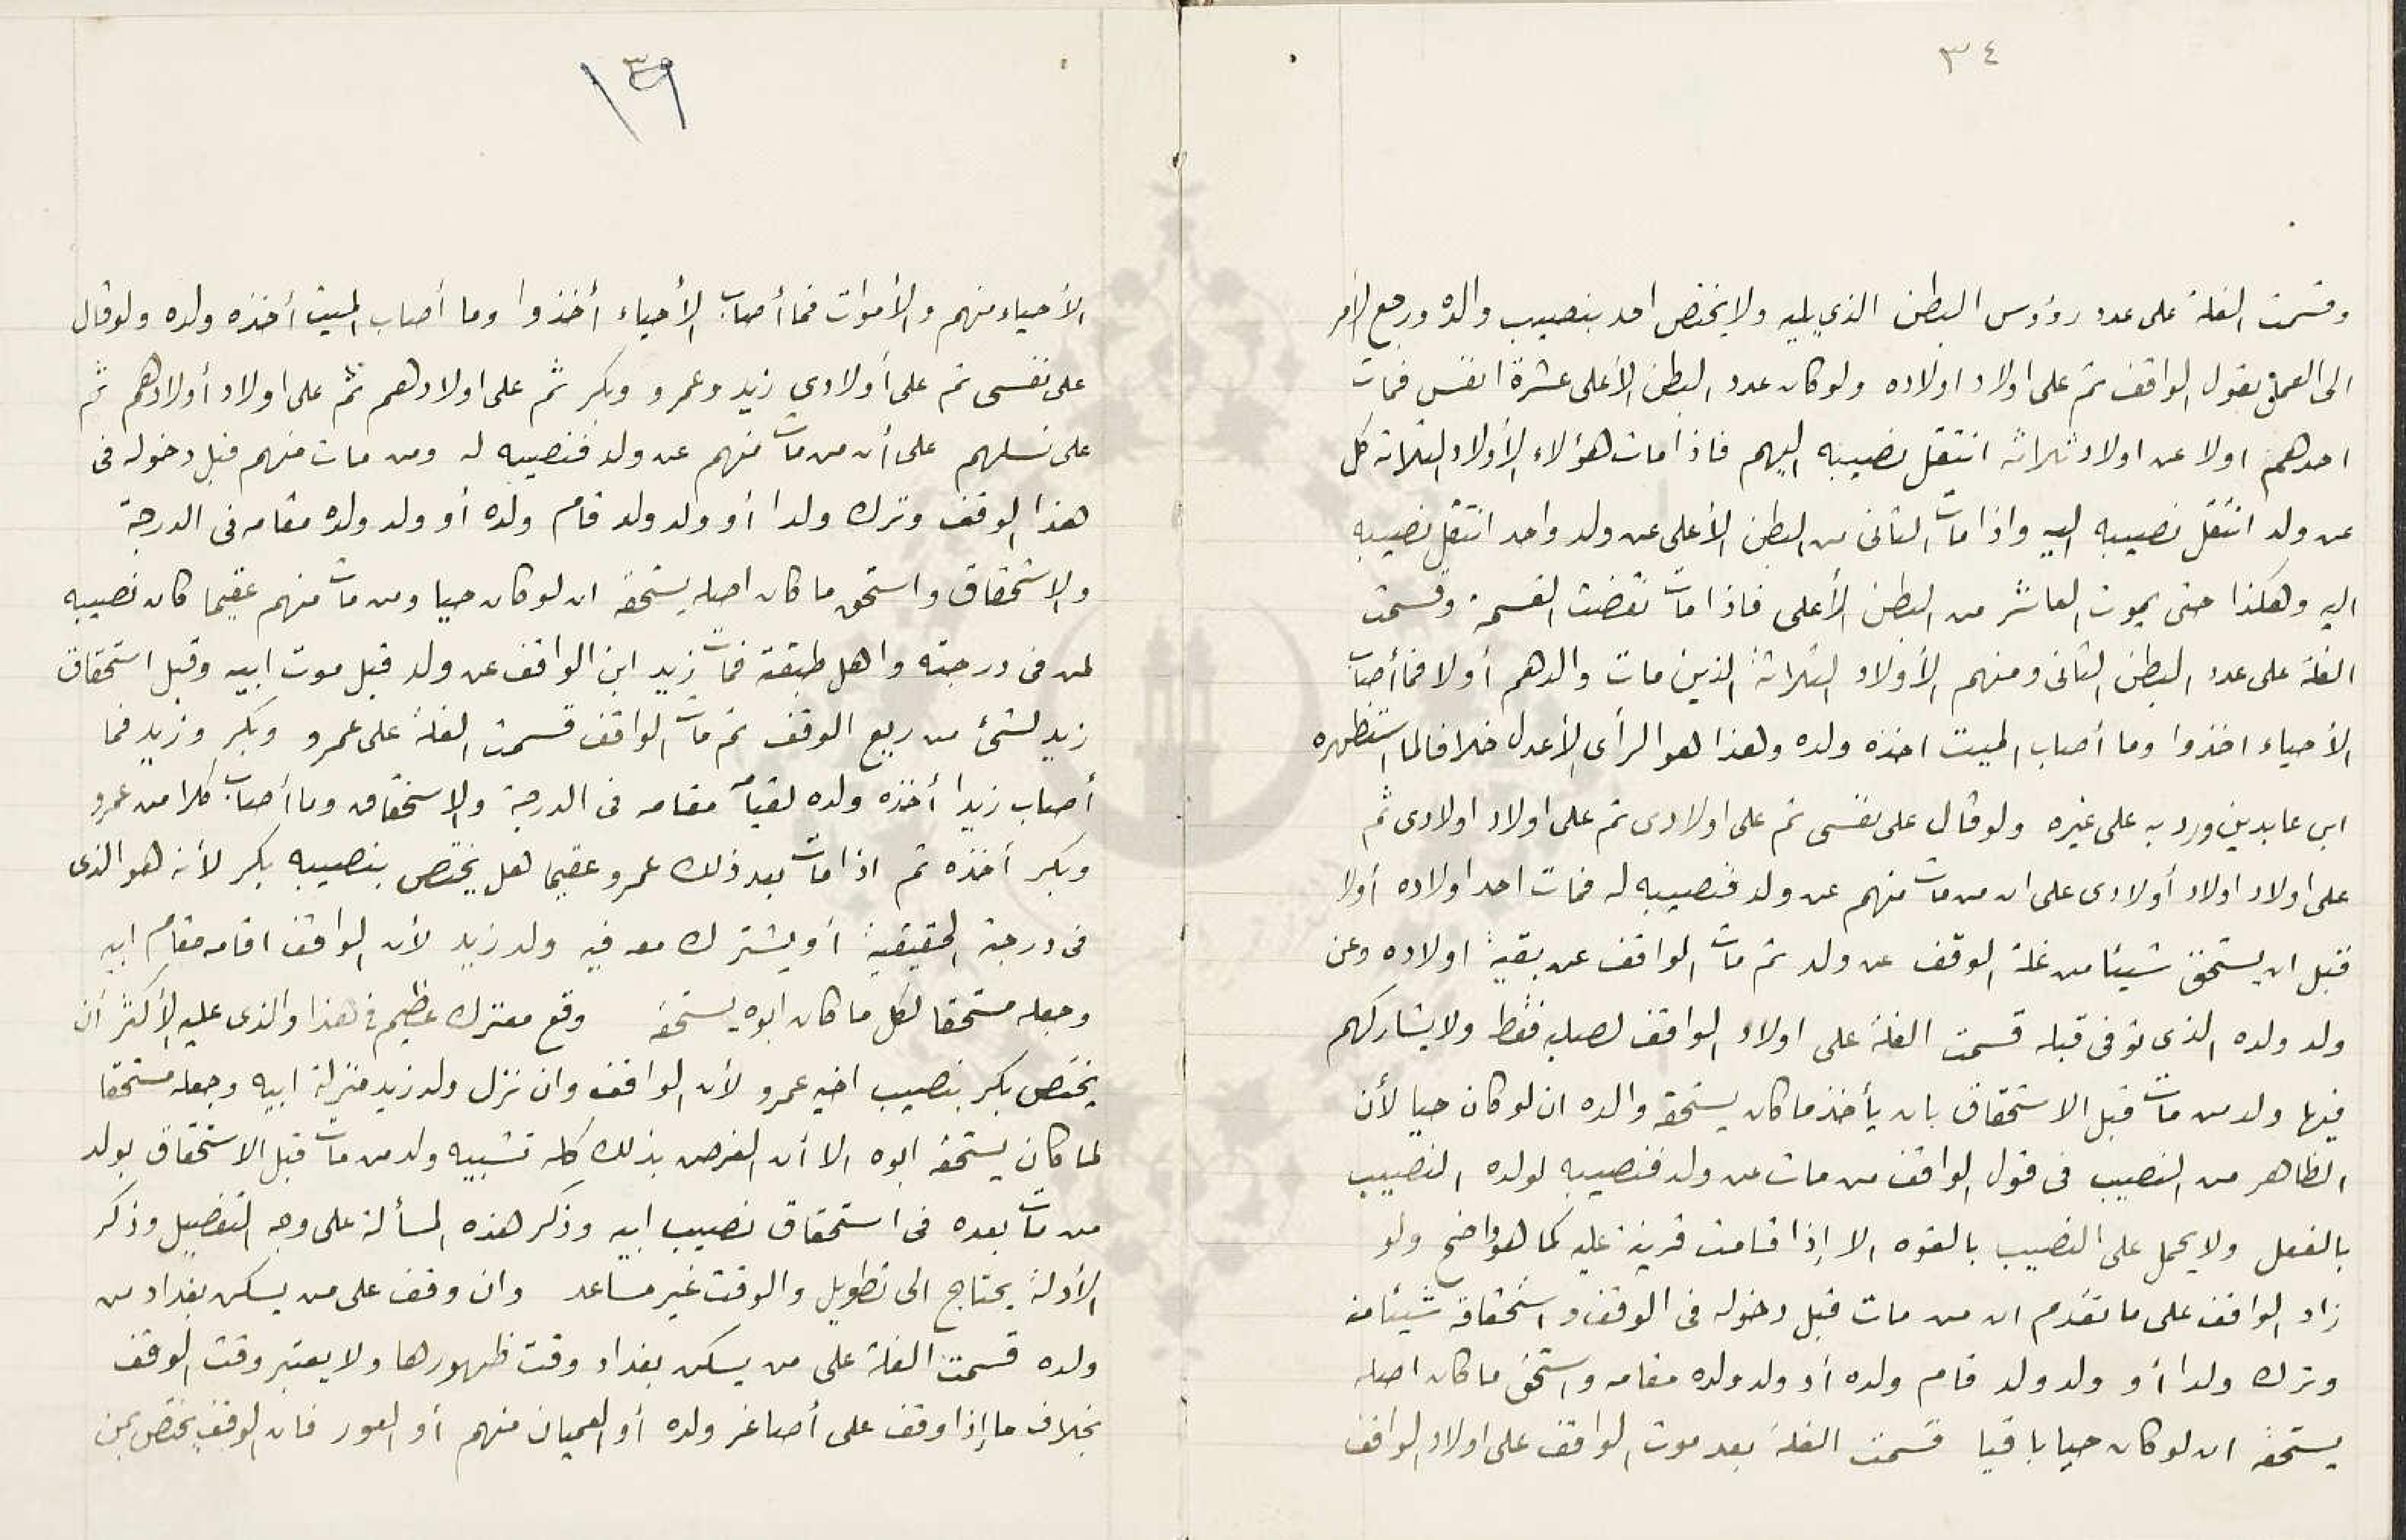 ٣٤
وقسمت الغلة على عدد رؤوس البطن الذي يليه ولا يختص احد بنصيب والده ورجع الأمر
الى العمل بقول الواقف ثم على اولاد اولاده ولو كان عدد البطن الأعلى عشرة انفس فمات
احدهم اولا عن اولاد ثلاثة انتقل نصيبه اليهم فاذا مات هؤلاء الأولاد الثلاثة كل
عن ولد انتقل نصيبه اليه واذا مات الثانى من البطن الأعلى عن ولد واحد انتقل نصيبه
اليه وهكذا حتى يموت العاشر من البطن الأعلى فاذا مات نقضت القسمة وقسمت
الغلة على عدد البطن الثانى ومنهم الأولاد الثلاثة الذين مات والدهم أولا فما أصاب
الأحياء اخذوا وما أصاب الميت اخذه ولده وهذا هو الرأى الأعدل خلافا لما استظهره
ابن عابدين ورد به على غيره ولو قال على نفسى ثم على اولادى ثم على اولاد اولادى ثم
على اولاد اولاد أولادى على ان من مات منهم عن ولد فنصيبه له فمات احد اولاده أولا
قبل ان يستحق شيئا من غلة الوقف عن ولد ثم مات الواقف عن بقية اولاده وعن
ولد ولده الذى توفى قبله قسمت الغلة على اولاد الواقف لصلبه فقط ولا يشاركهم
فيها ولد من مات قبل الاستحقاق بان يأخذ ما كان يستحقه والده ان لو كان حيا لأن
الظاهر من النصيب فى قول الواقف من مات عن ولد فنصيبه لولده النصيب
بالفعل ولا يحمل على النصيب بالقوه الا إذا قامت قرينة عليه كما هو واضح ولو
زاد الواقف على ما تقدم ان من مات قبل دخوله فى الوقف واستحقاقه شيئا منه
وترك ولدا أو ولد ولد قام ولده أو ولد ولده مقامه واستحق ما كان اصله
يستحقه ان لو كان حيا باقيا قسمت الغلة بعد موت الواقف على اولاد الواقف
الأحياء منهم والأموات فما أصاب الأحياء أخذوا وما أصاب الميت أخذه ولده ولو قال
على نفسى ثم على أولادى زيد وعمرو وبكر ثم على اولادهم ثم على اولاد أولادهم ثم
على نسلهم على أن من مات منهم عن ولد فنصيبه له ومن مات منهم قبل دخوله فى
هذا الوقف وترك ولدا أو ولد ولد قام ولده أو ولد ولده مقامه فى الدرجة
والاستحقاق واستحق ما كان اصله يستحقه ان لو كان حيا ومن مات منهم عقيما كان نصيبه
لمن فى درجته واهل طبقته فمات زيد ابن الواقف عن ولد قبل موت ابيه وقبل استحقاق
زيد لشئ من ريع الوقف ثم مات الواقف قسمت الغلة على عمرو وبكر وزيد فما
أصاب زيدا أخذه ولده لقيامه مقامه فى الدرجة والاستحقاق وما أصاب كلا من عمرو
وبكر أخذه ثم اذا مات بعد ذلك عمرو عقيما هل يختص بنصيبه بكر لأنه هو الذى
فى درجته الحقيقية أو يشترك معه فيه ولد زيد لأن الواقف اقامه مقام ابيه
وجعله مستحقا لكل ما كان ابوه يستحقه وقع معترك عظيم فى هذا والذى عليه الأكثر أن
يختص بكر بنصيب اخيه عمرو لأن الواقف وان نزل ولد زيد منزلة ابيه وجعله مستحقا
لما كان يستحقه ابوه الا أن الغرض بذلك كله تشبيه ولد من مات قبل الاستحقاق بولد
من مات بعده فى استحقاق نصيب ابيه وذكر هذه المسألة على وجه التفصيل وذكر
الأدلة يحتاج الى تطويل والوقت غير مساعد وان وقف على من يسكن بغداد من
ولده قسمت الغلة على من يسكن بغداد وقت ظهورها ولا يعتبر وقت الوقف
بخلاف ما إذا وقف على أصاغر ولده أو العميان منهم أو العور فان الوقف يختص بمن